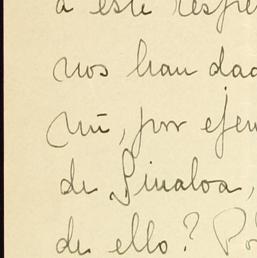 a este respe
nos han dad
mí, por ejem
de Sinaloa,
de ello? Po